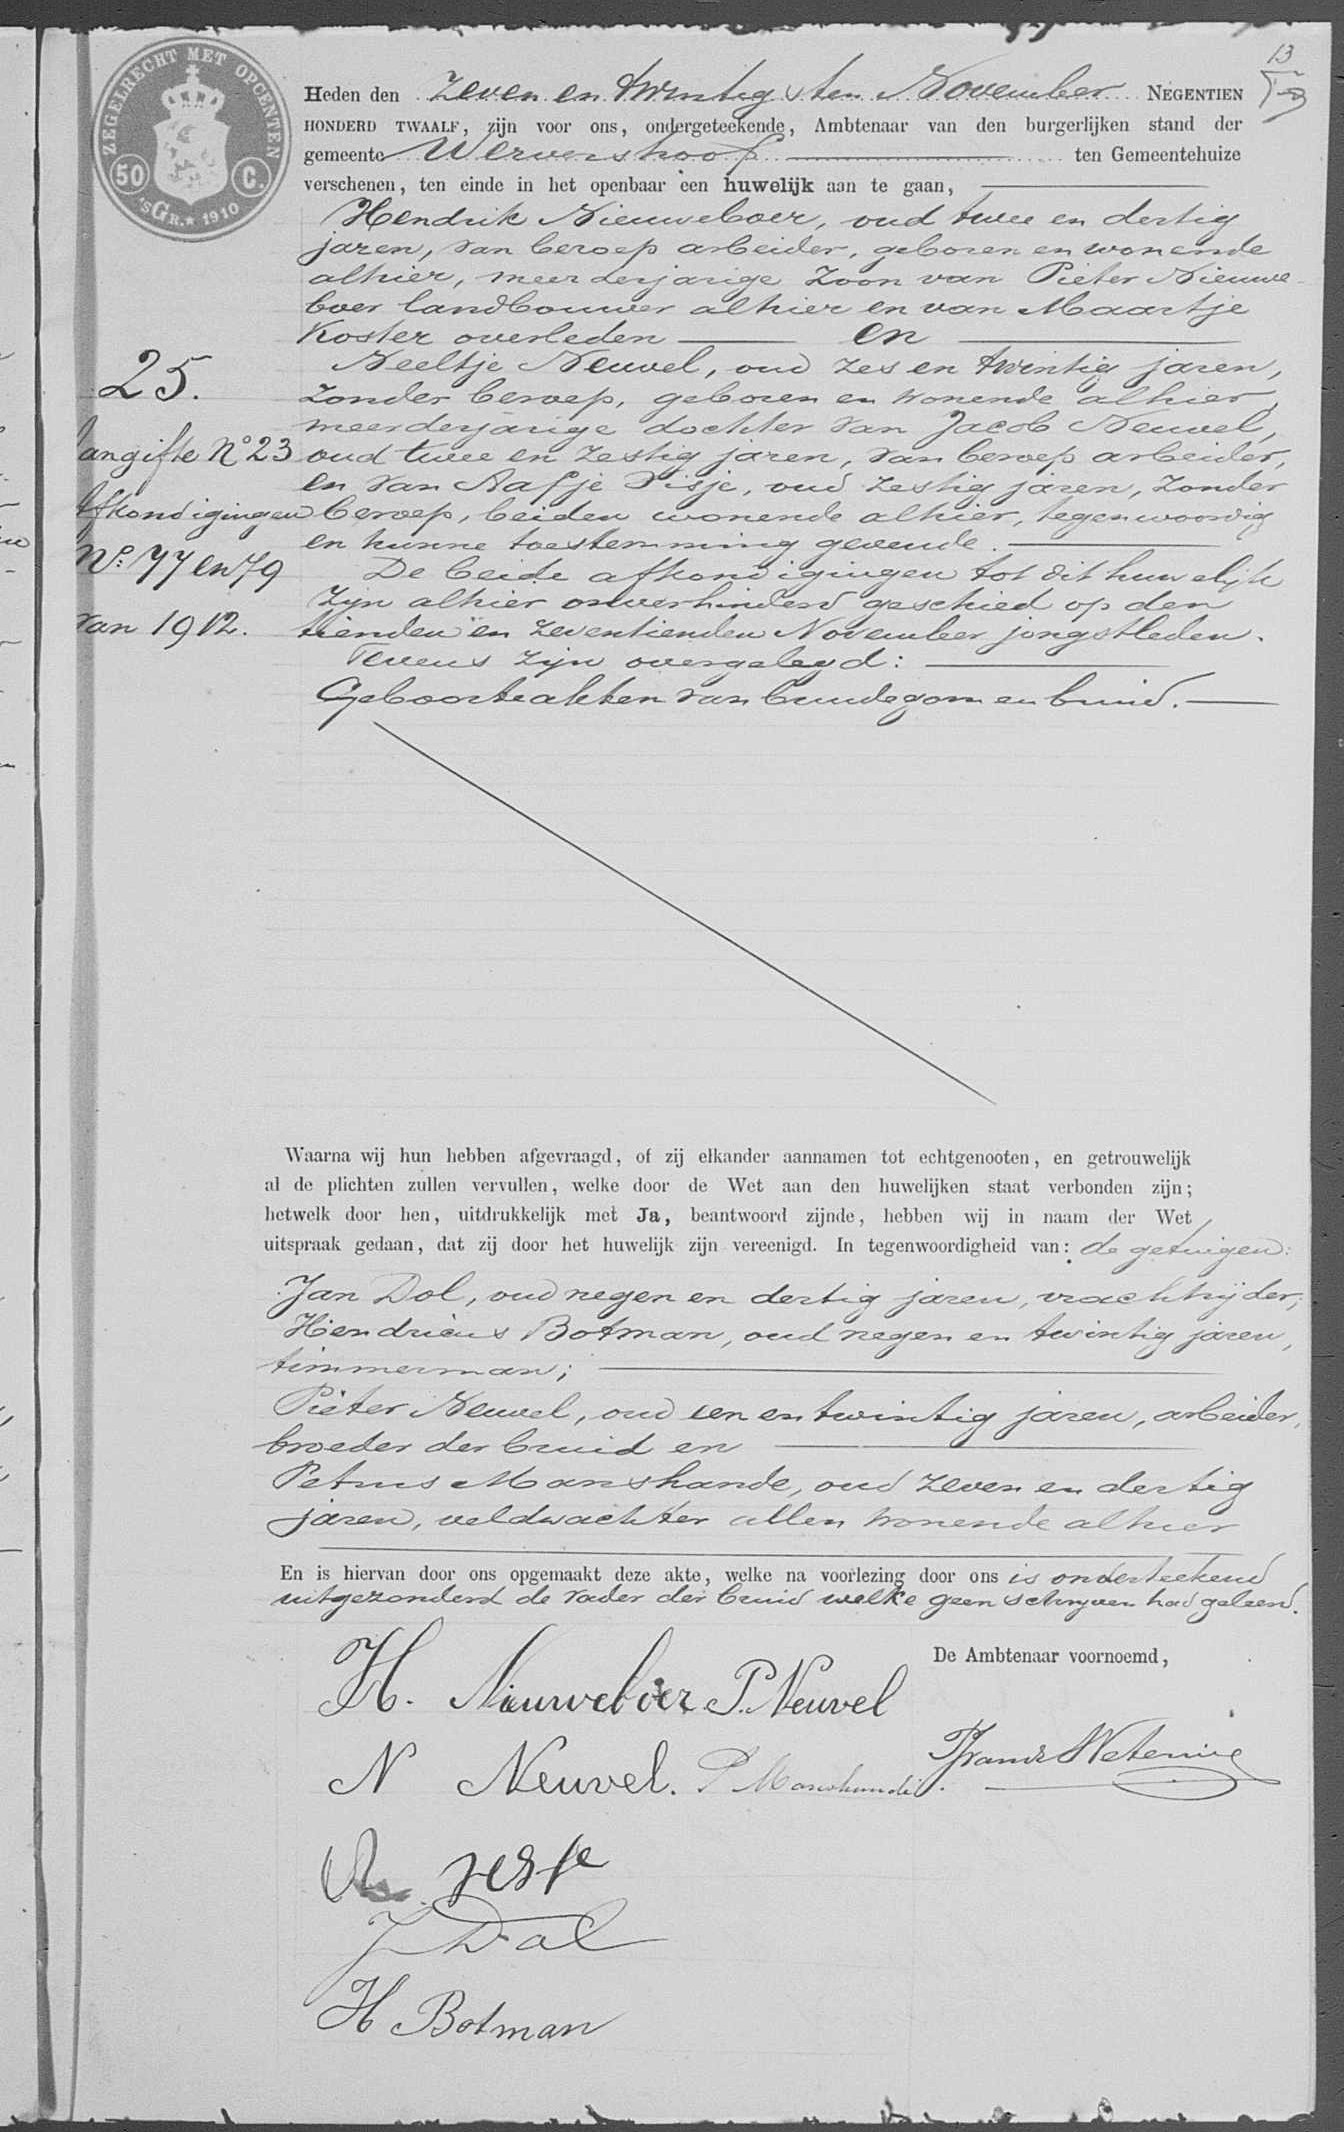 ZEGELRECHT MET OPCENTEN
50 C.
'SGR.★1910
13
Heden den zeven en twintigsten November NEGENTIEN
HONDERD TWAALF, zijn voor ons, ondergeteekende, Ambtenaar van den burgerlijken stand der
gemeente Wervershoof ten Gemeentehuize
verschenen, ten einde in het openbaar een huwelijk aan te gaan,
Hendrik Nieuweboer, oud twee en dertig
jaren, van beroep arbeider, geboren en wonende
alhier, meerderjarige zoon van Pieter Nieuwe-
boer landbouwer alhier en van Maartje
Koster overleden en
25.
Neeltje Neuvel, oud zes en twintig jaren,
zonder beroep, geboren en wonende alhier,
meerderjarige dochter van Jacob Neuvel,
aangifte No 23
oud twee en zestig jaren, van beroep arbeider,
en van Aafje Visje, oud zestig jaren, zonder
Afkondigingen
beroep, beiden wonende alhier, tegenwoordig
en hunne toestemming gevende.
No. 77 en 79
De beide afkondigingen tot dit huwelijk
zijn alhier onverhinderd geschied op den
van 1912.
tienden en zeventienden November jongstleden.
Tevens zijn overgelegd:
Geboorteakten van bruidegom en bruid.
Waarna wij hun hebben afgevraagd, of zij elkander aannamen tot echtgenooten, en getrouwelijk
al de plichten zullen vervullen, welke door de Wet aan den huwelijken staat verbonden zijn;
hetwelk door hen, uitdrukkelijk met Ja, beantwoord zijnde, hebben wij in naam der Wet
uitspraak gedaan, dat zij door het huwelijk zijn vereenigd. In tegenwoordigheid van: de getuigen:
Jan Dol, oud negen en dertig jaren, vrachtrijder,
Hendricus Botman, oud negen en twintig jaren,
timmerman;
Pieter Neuvel, oud een en twintig jaren, arbeider,
broeder der bruid en
Petrus Manshande, oud zeven en dertig
jaren, veldwachter allen wonende alhier
En is hiervan door ons opgemaakt deze akte, welke na voorlezing door ons is onderteekend
uitgezonderd de vader der bruid welke geen schrijven had geleerd.
De Ambtenaar voornoemd,
H. Nieuweboer P. Neuvel
N Neuvel. P Manshande.
J Dol
H Botman